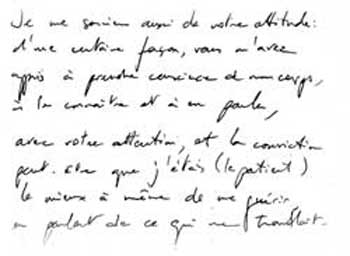 Je me souviens aussi de votre attitude :
d'une certaine façon, vous m'avez
appris à prendre conscience de mon corps,
à le connaître et à en parler,
avec votre attention, et la conviction
peut-être que j'étais (le patient)
le mieux à même de me guérir,
en parlant de ce qui me troublait.